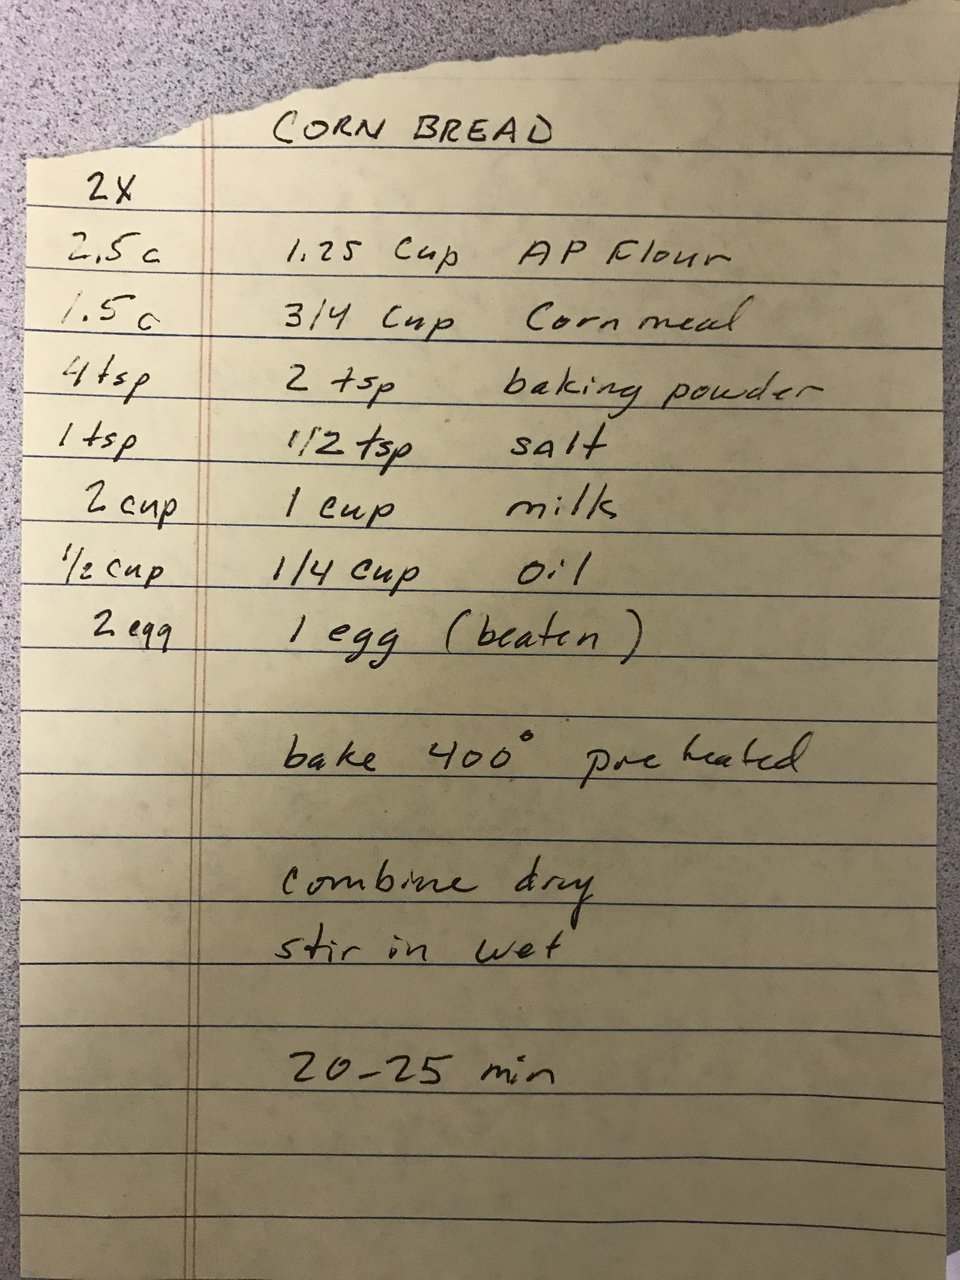 CORN BREAD
2X
2.5 c 1.25 Cup AP Flour
1.5 c 3/4 Cup Corn meal
4 tsp 2 tsp baking powder
1 tsp 1/2 tsp salt
2 cup 1 cup milk
1/2 cup 1/4 cup oil
2 egg 1 egg (beaten)
bake 400° pre heated
combine dry
stir in wet
20-25 min